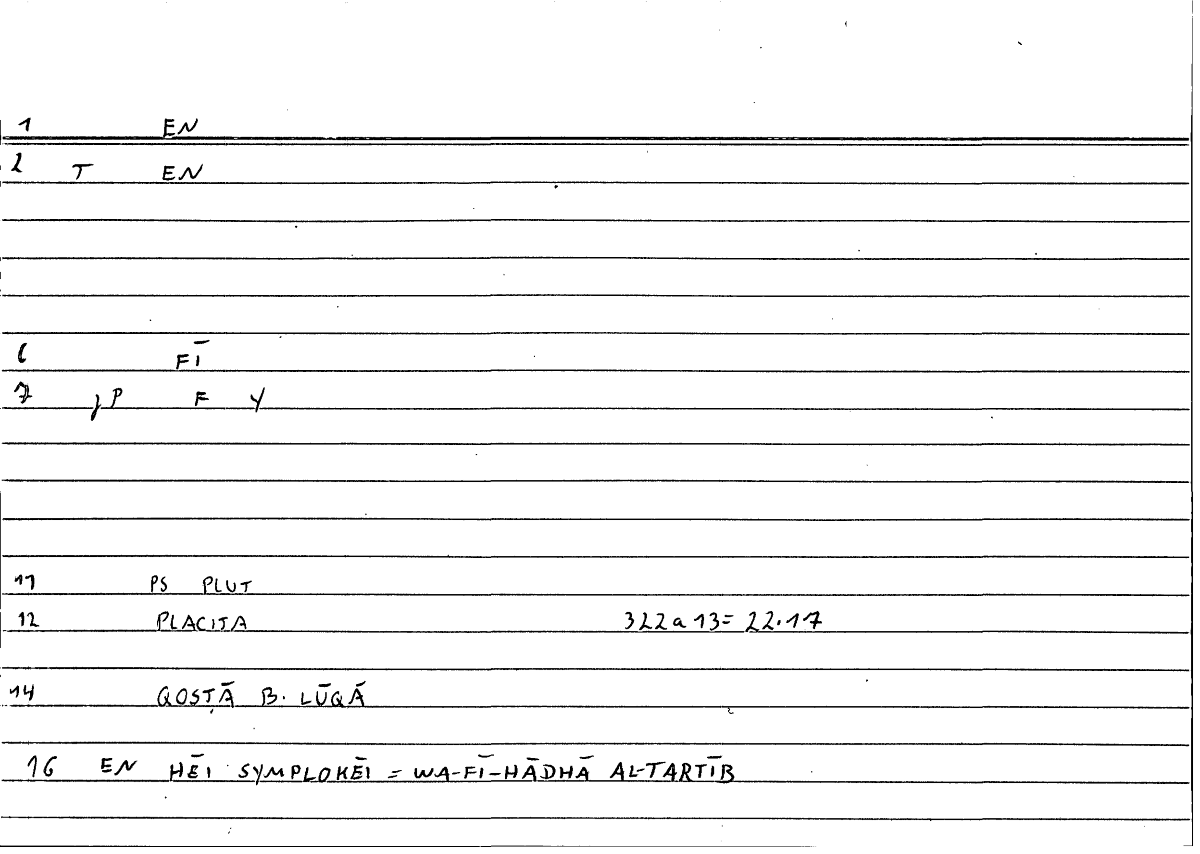 1 EN
2 T EN
6 FĪ
7 jP F Y
11 PS PLUT
12 PLACITA 322a13= 22.17
14 QOSṬĀ B. LŪQĀ
16 EN HĒI SYMPLOKĒI = WA-FĪ-HĀDHĀ AL-TARTĪB